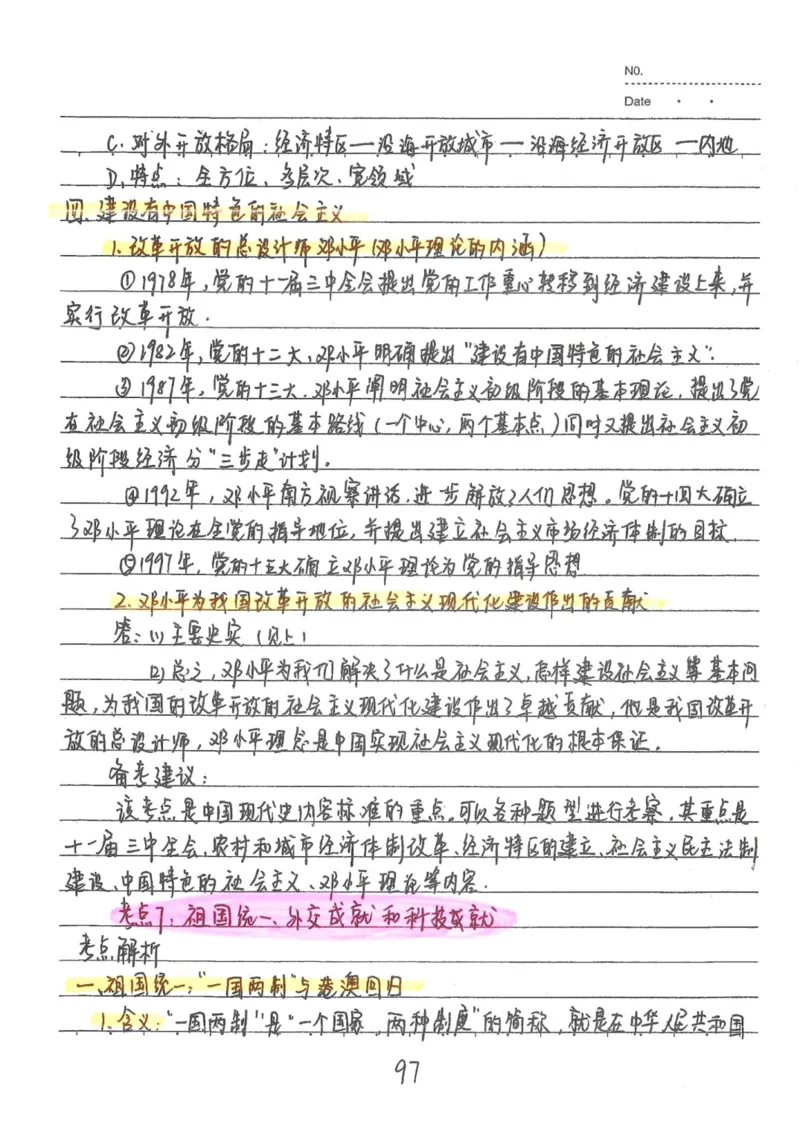 NO.
Date
C. 对外开放格局：经济特区—沿海开放城市—沿海经济开放区—内地
D. 特点：全方位、多层次、宽领域
四、建设有中国特色的社会主义
1. 改革开放的总设计师邓小平（邓小平理论的内涵）
①1978年，党的十一届三中全会提出党的工作重心转移到经济建设上来，并
实行改革开放.
②1982年，党的十二大，邓小平明确提出“建设有中国特色的社会主义”.
③1987年，党的十三大，邓小平阐明社会主义初级阶段的基本理论，提出了党
在社会主义初级阶段的基本路线（一个中心，两个基本点）同时又提出社会主义初
级阶段经济分“三步走”计划。
④1992年，邓小平南方视察讲话，进一步解放了人们思想。党的十四大确立
了邓小平理论在全党的指导地位，并提出建立社会主义市场经济体制的目标.
⑤1997年，党的十五大确立邓小平理论为党的指导思想
2. 邓小平为我国改革开放的社会主义现代化建设作出的贡献
答：(1)主要史实（见上）
(2)总之，邓小平为我们解决了什么是社会主义，怎样建设社会主义等基本问
题，为我国的改革开放的社会主义现代化建设作出了卓越贡献，他是我国改革开
放的总设计师，邓小平理念是中国实现社会主义现代化的根本保证。
备考建议：
该考点是中国现代史内容标准的重点。可以各种题型进行考察，其重点是
十一届三中全会、农村和城市经济体制改革、经济特区的建立、社会主义民主法制
建设、中国特色的社会主义、邓小平理论等内容.
考点7：祖国统一、外交成就和科技成就
考点解析
一、祖国统一：“一国两制”与港澳回归
1. 含义：“一国两制”是“一个国家，两种制度”的简称，就是在中华人民共和国
97